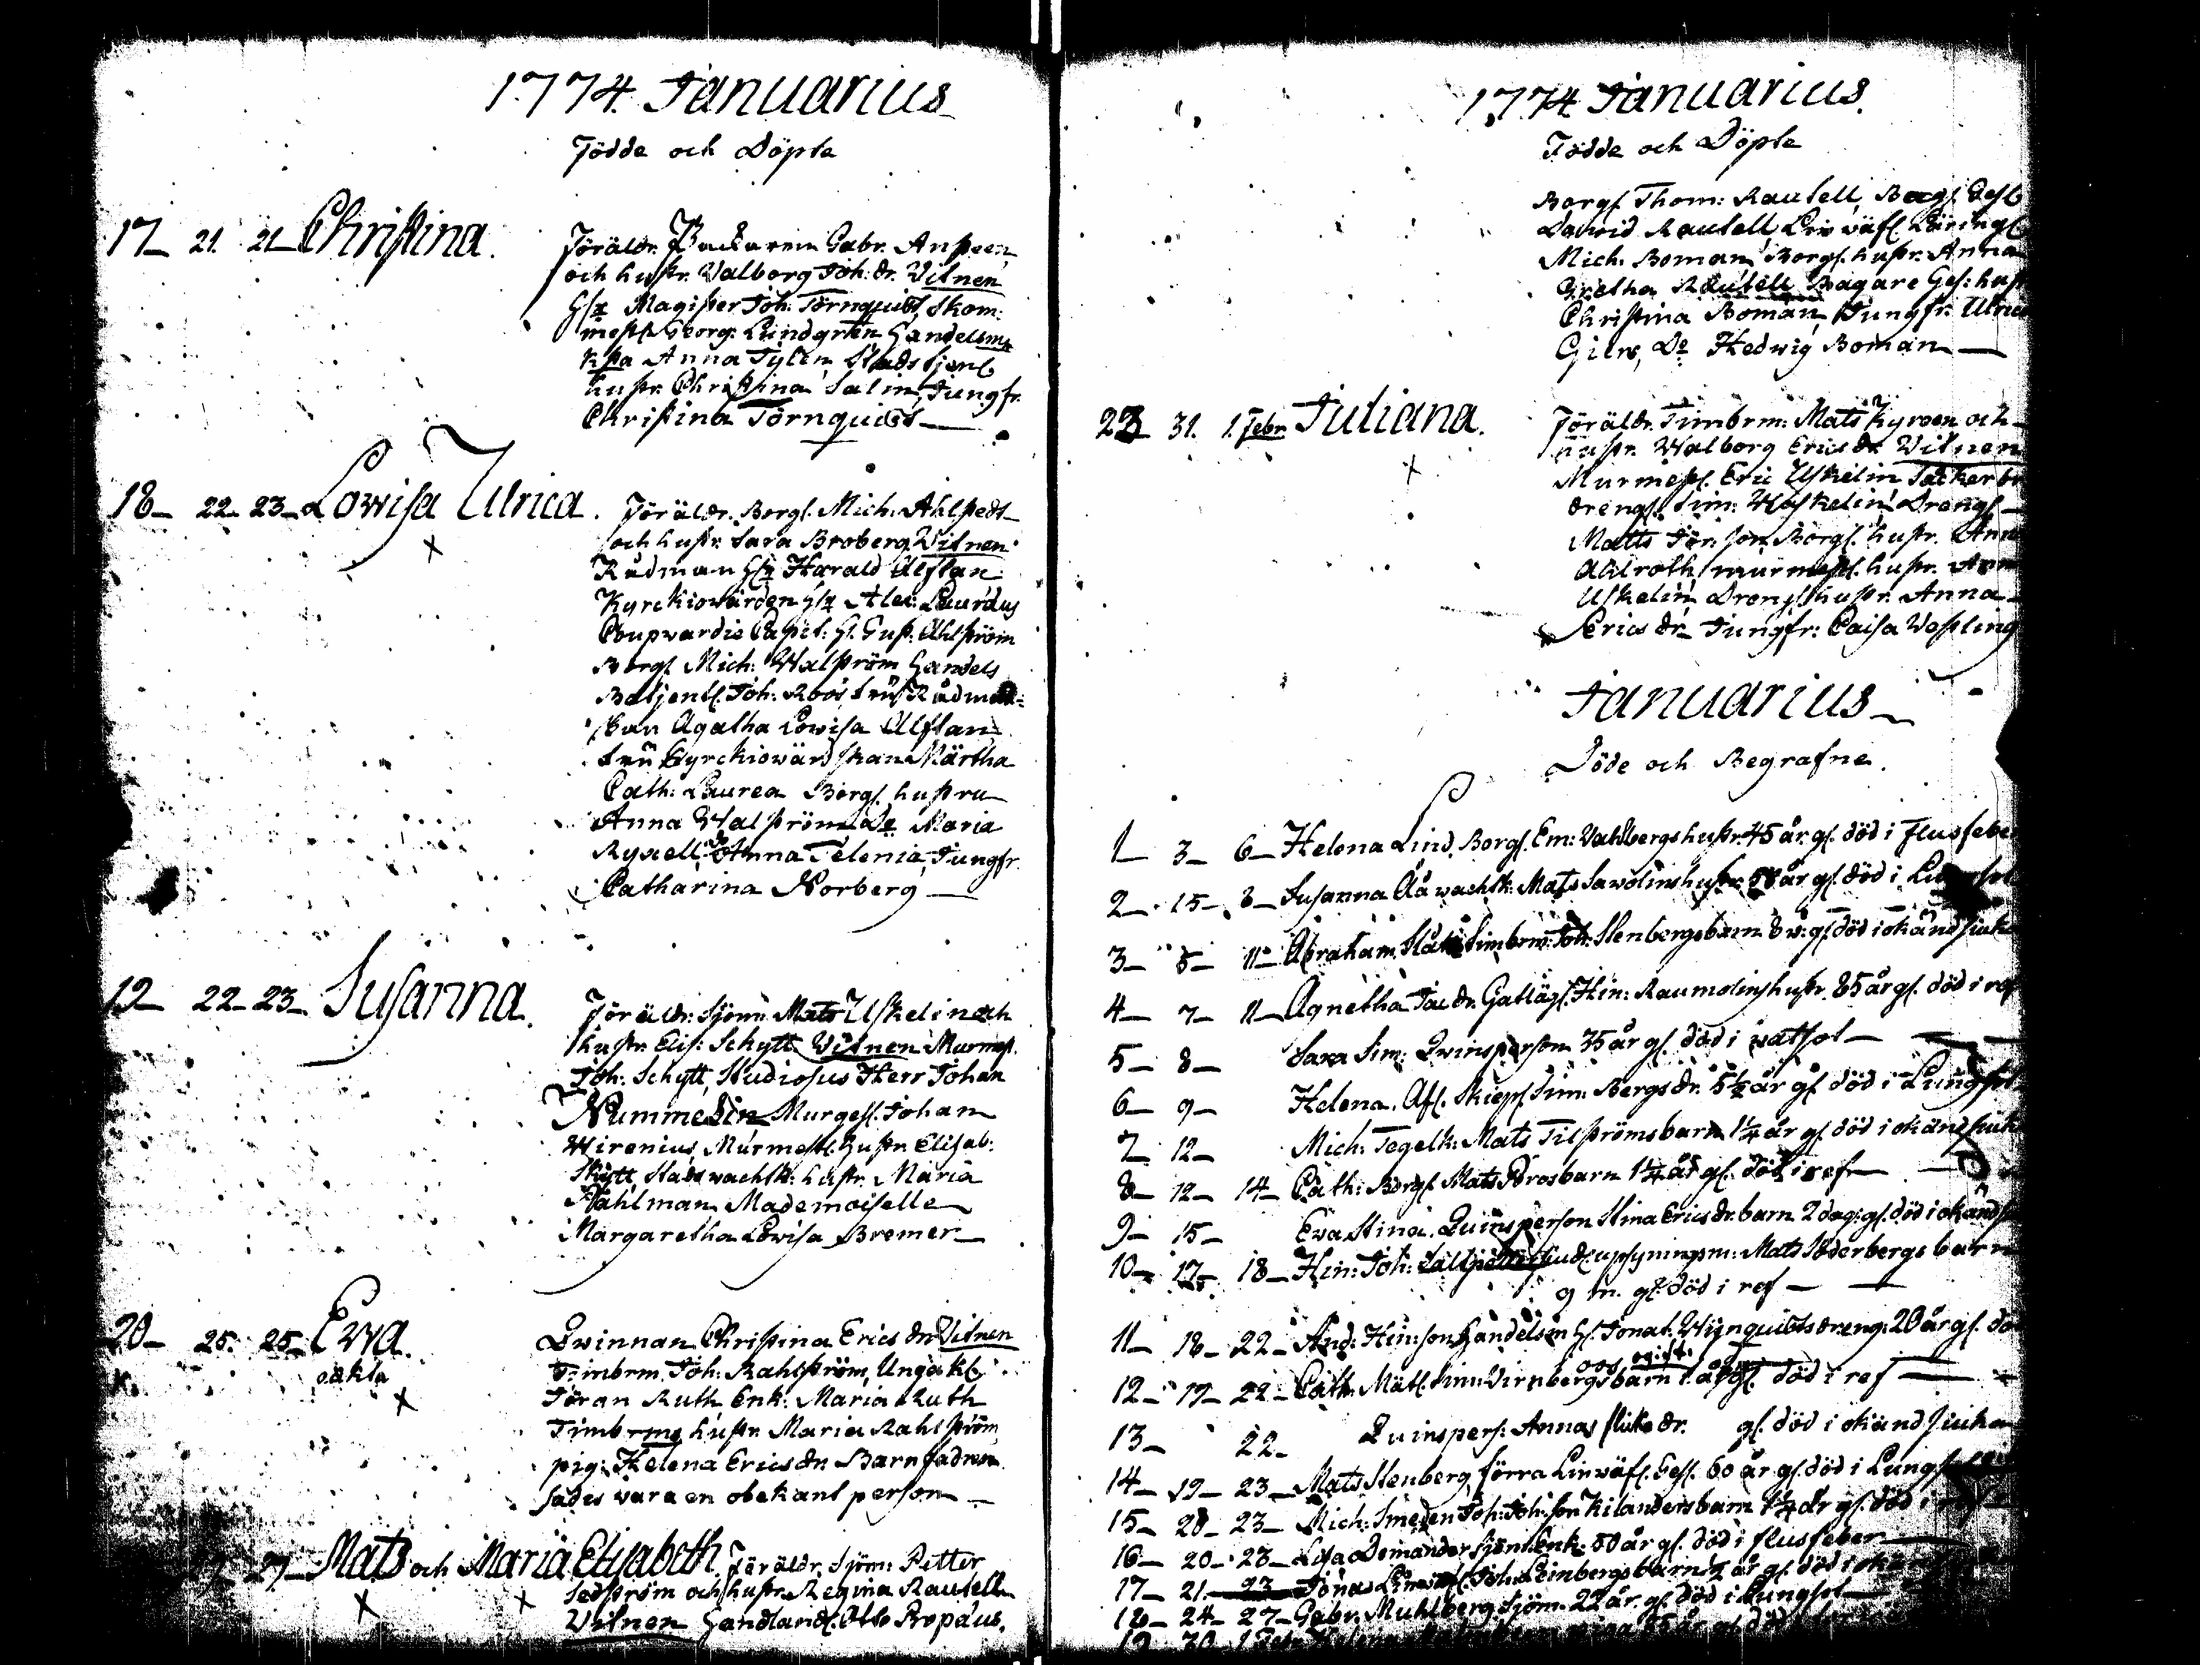 1774. Januarius
Födde och Döpte
17 21. 21 Christina. Föräldr. Backaren Gabr. Ansteen
och hustr. Walborg Joh: dr. Vitnen
Hr Magister Joh: Törnquist, Skom:
mestr Georg: Lindgren Handelsm
k sta Anna Tylen Stads tjenl
hustr. Christina Salin, Jungfr.
Christina Törnquist
18 22 23 Lowisa Ulrica. Föräldr. Borgl. Mich. Ahlstedt
och hustr. Sara Broberg. Vitnen
Rådman Hr Harald Alftan
Kyrckiowärden Hr Alex: Lauræus
Coupvardie Capit: H. Gust. Ahlström
Borgl Mich: Walström Handels
Betjentl. Joh. Roos, Fru Rådman
skan Agatha Lowisa Alftan
Fru Kyrckiowärdskan Märtha
Cath: Laurea Borgl. hustru
Anna Walström Do Maria
Ryxell, Do Anna Telenia, Jungfr.
Catharina Norberg
19 22 23 Susanna. Föräldr. Sjöm: Mats Uskelin och
hustr. Elis: Schytt Vitnen Murmest.
Joh: Schytt, Studiosus Herr Johan
Nummelin Murgesl. Johan
Wirenius, Murmestl. Hustr. Elisab:
Skytt, Stadswachtk: hustr. Maria
Stahlman Mademoiselle
Margaretha Lowisa Bremer
20 25. 25 Ewa. Qwinnan Christina Erics dr. Vitnen
oäkta Timbrm. Joh: Rahlström, Unga kl
Jöran Ruth Enk: Maria Ruth
Timbrms hustr. Maria Rahlström
pig: Helena Erics dr. Barnfadren
sades wara en obekant person
27 Mats och Maria Elisabeth. Föräldr. Sjöm: Petter
Sedström och hustr. Regina Rautell
Vitnen Handlandl. Otto Propæus,
1774 Januarius.
Födde och Döpte
Borgl. Thom: Rautell, Bagl. Gesl
David Rautell Linwäfl. Läringl
Mich. Boman, Borgl. hustr. Anna
Gretha Rautell Bagare Ges: hust
Christina Boman, Jungfr. Ulrica
Gilns, Do Hedwig Boman
23 31. 1. Febr. Juliana. Föräldr. Timbrm: Mats Kyreen och
hustr. Walborg Erics dr. Vitnen
Murmestl. Eric Uskelin Såcker br
drengl. Sim: Uskelin Drengl
Matts Jör: son Borgl. hustr. Ann
Ahlroth, murmestl. hustr. Ann
Uskelin Drengl hustr. Anna
Erics dr. Jungfr: Caisa Wessling
Januarius
Döde och Begrafne.
1 3 6 Helena Lind, Borgl. Em: Vahlbergs hustr. 45 år gl. död i flusfeber
2 15 8 Susanna Åå wachtk: Mats Sawolins hustr. 58 år gl. död i
3 8 11 Abraham, Timbrm: Joh: Stenbergs barn 8 w: gl. död i okänd siuk
4 7 11 Agnetha Jac dr. Gatlägl. Hin: Raumolins hustr. 85 år gl. död i ref
5 8 Sara Sim: Qwinsperson 35 år gl. död i watsot
6 9 Helena. Afl. Skiepl Sim: Bergs dr. 5½ år gl. död i Lungsot
7 12 Mich: Tegelk: Mats Tilströms barn 1¼ år gl. död i okänd siuk
8 12 14 Cath: Borgl. Mats Pros barn 1¼ år gl. död i ref
9 15 Ewa Stina. Quinsperson Stina Erics dr. barn 2 dag: gl. död i okänd
10 17 18 Hin: Joh: upsyningsm: Mats Söderbergs barn
9 m. gl. död i ref
11 18 22 And: Hin: son Handelsm Hl. Jonat. Wijnquists dreng: 20 år gl. dö
12 19 22 Cath. Mätl. Sim: Dirnbergs barn 1 år gl. död i ref
13 22 Quinspers: Annas dr. gl. död i okänd siuka
14 19 23 Mats Stenberg, förra Linwäfl. Gesl. 60 år gl. död i Lungsot
15 20 23 Mich: Smeden Joh: Joh: son Kilanders barn 1¼ år gl. död i
16 20 23 Lisa Domander Sjöml Enk: 50 år gl. död i flusfeber
17 21 23 Jonas Joh: Leinbergs barn ½ år gl. död i
18 24 27 Gabr. Muhlberg Sjöm: 22 år gl. död i Lungsot
19 30 1 Febr Helena